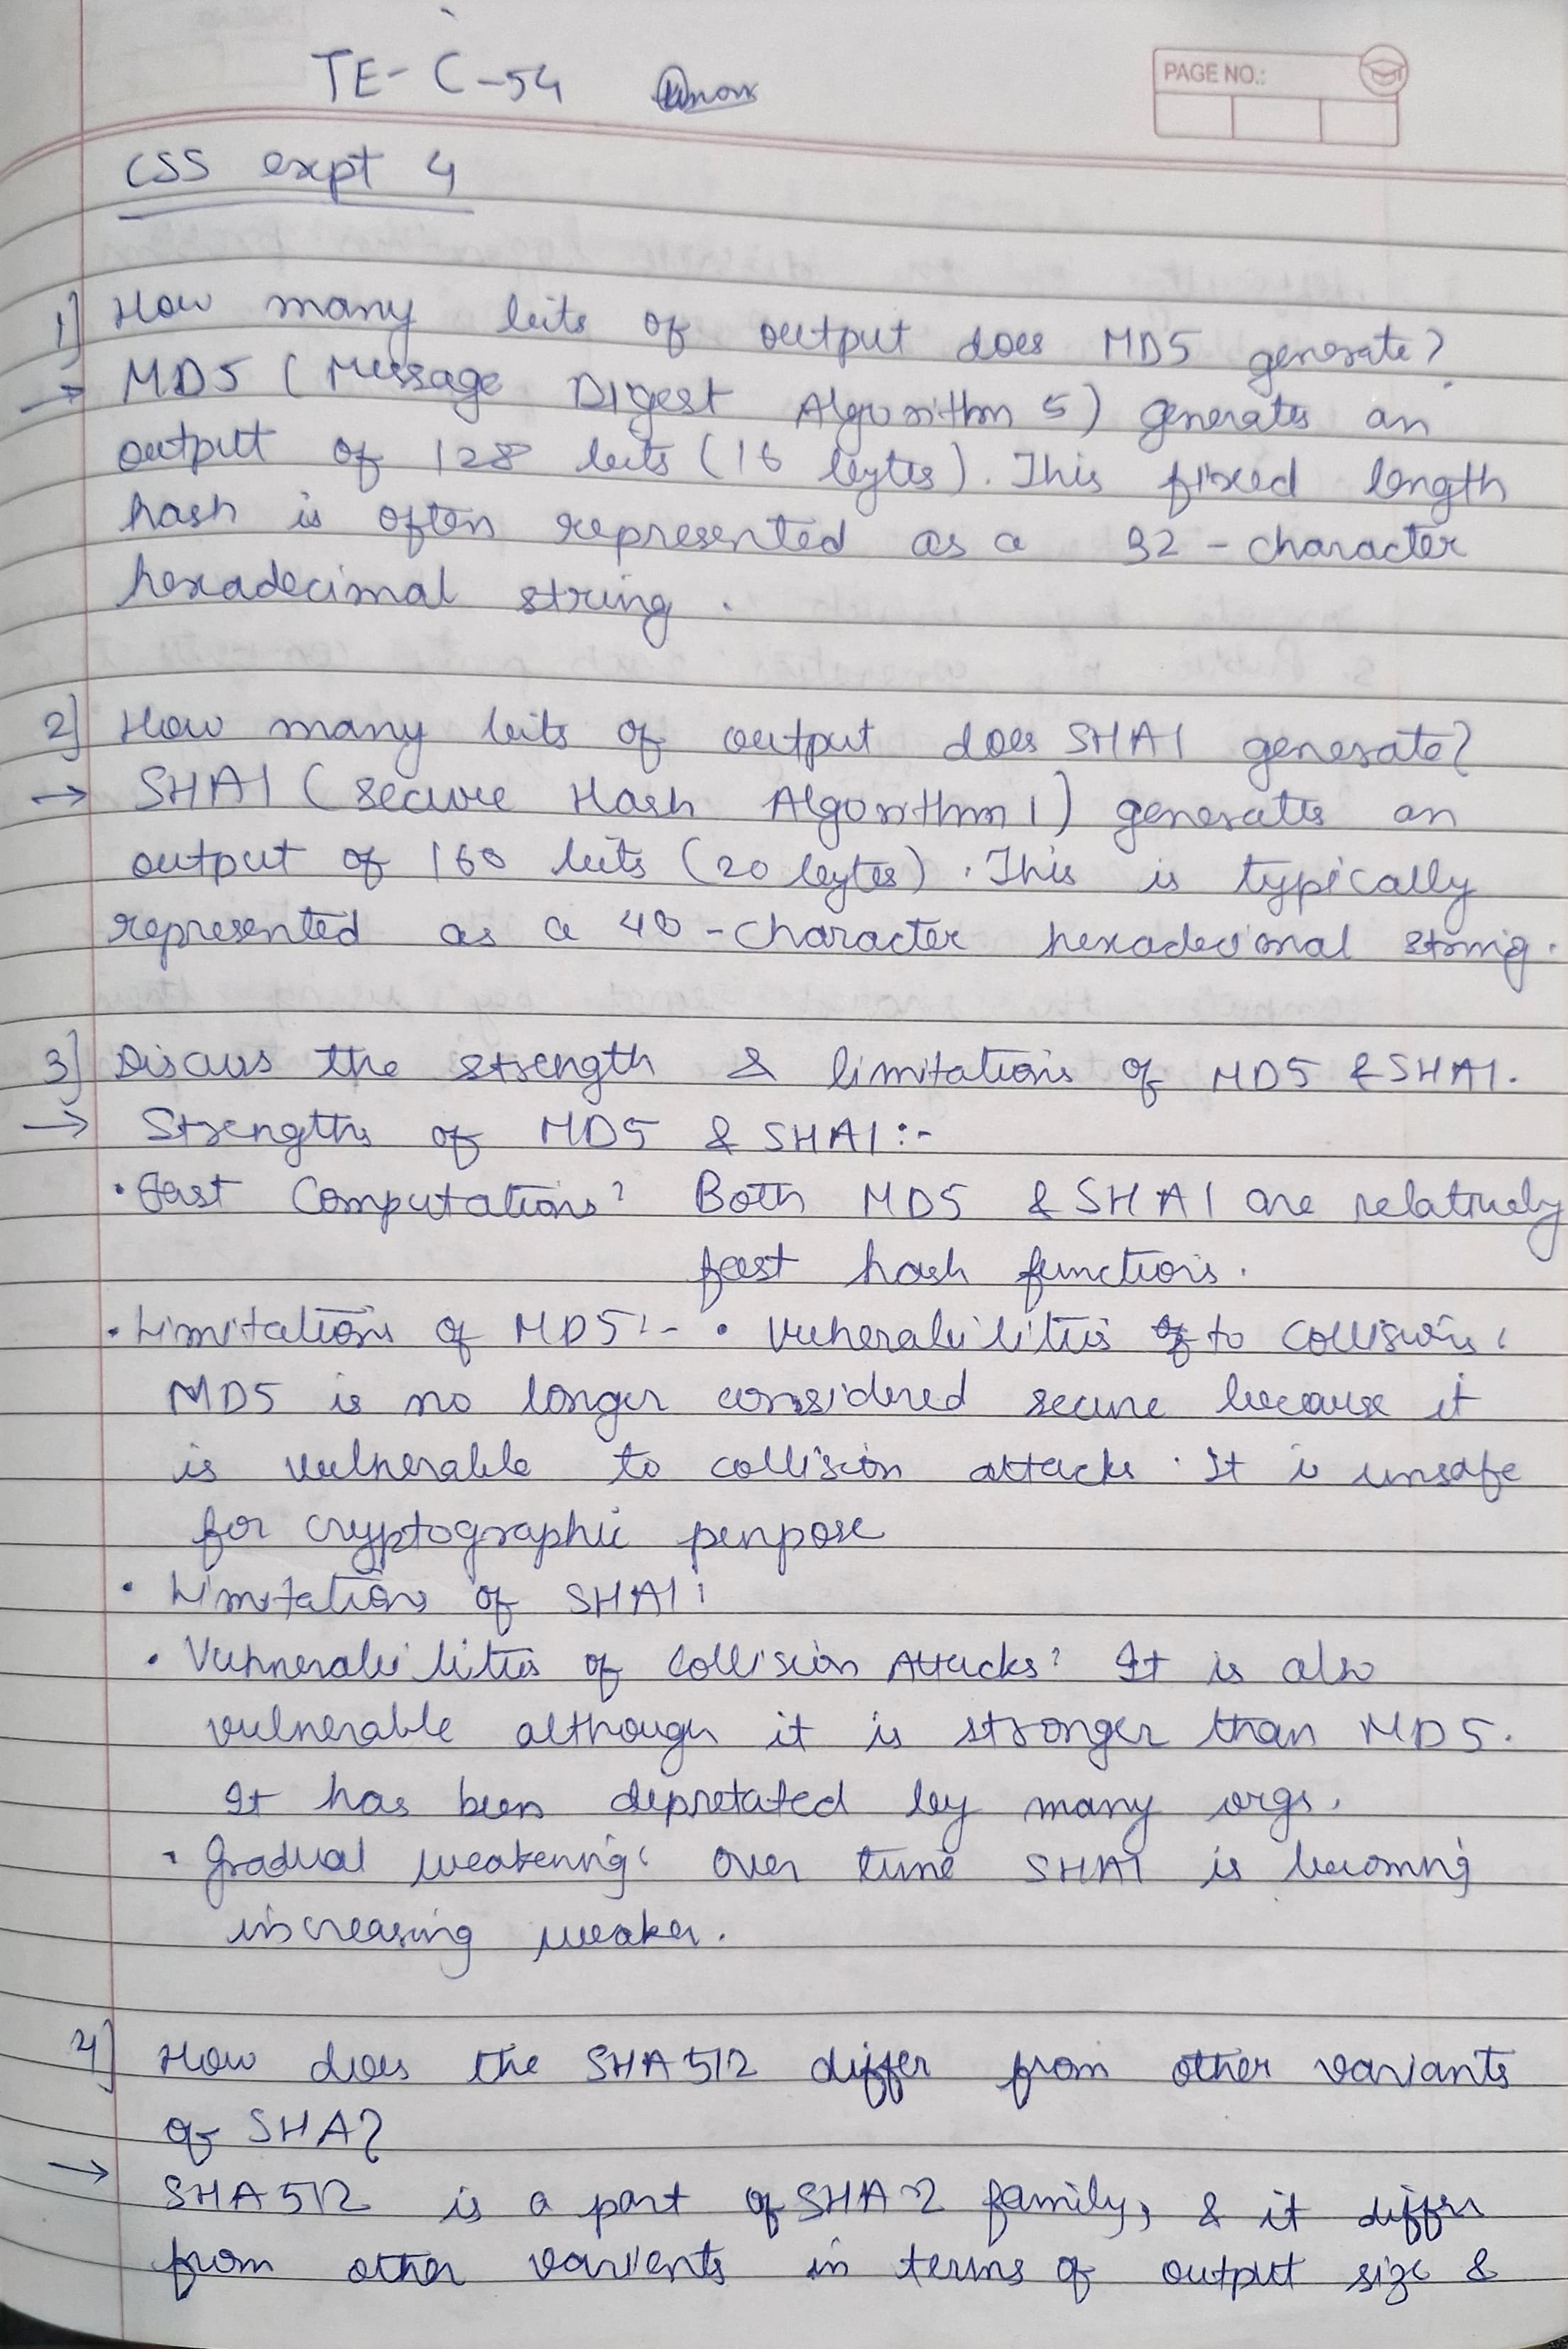 TE-C-54
PAGE NO.:
CSS expt 4
1] How many bits of output does MD5 generate?
→ MD5 (Message Digest Algorithm 5) generates an
output of 128 bits (16 bytes). This fixed length
hash is often represented as a 32-character
hexadecimal string.
2] How many bits of output does SHA1 generate?
→ SHA1 (Secure Hash Algorithm 1) generates an
output of 160 bits (20 bytes). This is typically
represented as a 40-character hexadecimal string.
3] Discuss the strength & limitations of MD5 & SHA1.
→ Strengths of MD5 & SHA1:-
• Fast Computations: Both MD5 & SHA1 are relatively
fast hash functions.
• Limitations of MD5:- • Vulnerabilities to collisions:
MD5 is no longer considered secure because it
is vulnerable to collision attacks. It is unsafe
for cryptographic penpose
• Limitations of SHA1:
• Vulnerabilities of Collision Attacks: It is also
vulnerable although it is stronger than MD5.
It has been depretated by many orgs.
• Gradual weakening: Over time SHA1 is becoming
increasing weaker.
4] How does the SHA512 differ from other variants
of SHA?
→ SHA512 is a part of SHA2 family, & it differs
from other varients in terms of output size &